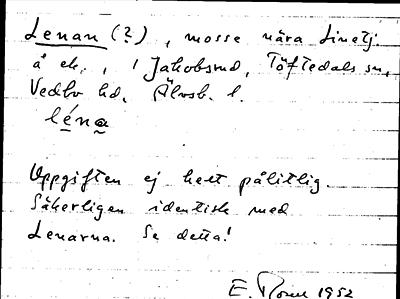 Lenan (?), mosse nära Linetj.
å ek., i Jakobsrud, Töftedals sn,
Vedbo hd, Älvsb. l.
léna
Uppgiften ej helt pålitlig.
Säkerligen identisk med
Lenarna. Se detta!
E. 1952